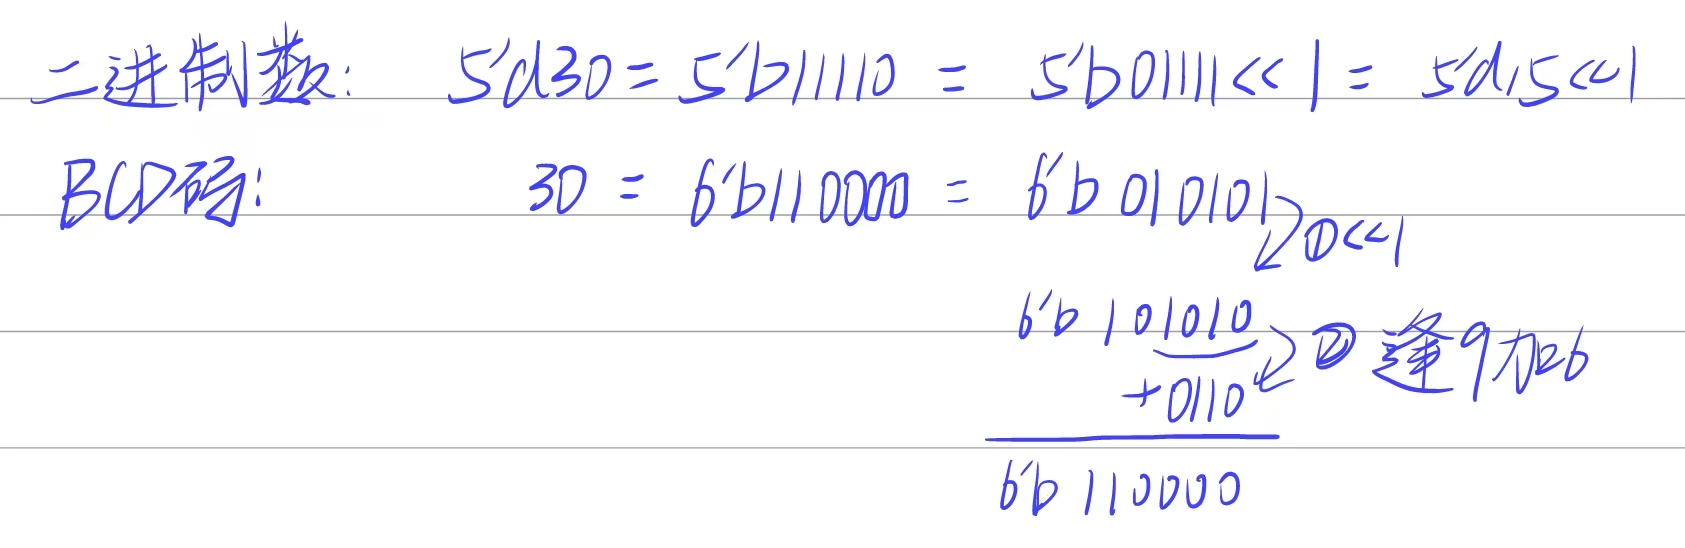 二进制数: 5'd30 = 5'b11110 = 5'b01111<<1 = 5'd15<<1
BCD码: 30 = 6'b110000 = 6'b010101
①<<1
6'b101010
+0110 ② 逢9加6
6'b110000